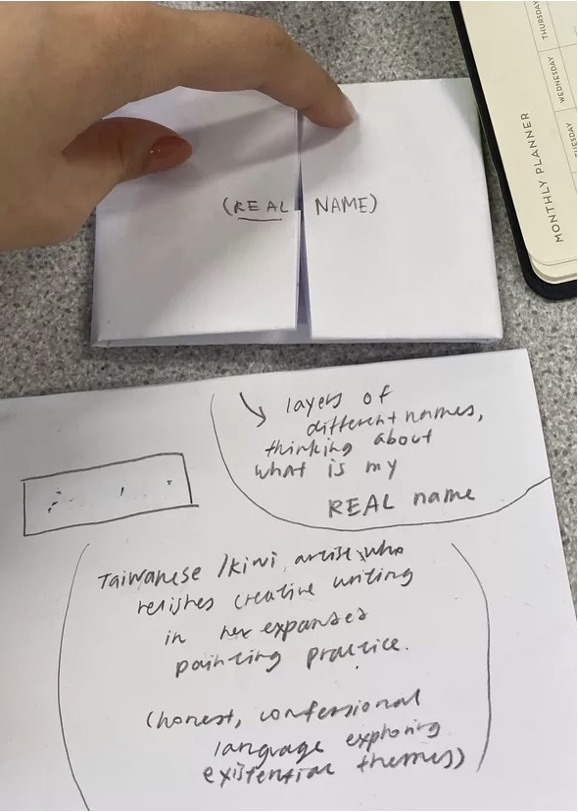 (REAL NAME)
MONTHLY PLANNER
THURSDAY
WEDNESDAY
TUESDAY
↘ layers of
different names,
thinking about
what is my
REAL name
(Taiwanese /kiwi artist who
relishes creative writing
in her expanded
painting practice.
(honest, confessional
language exploring
existential themes))